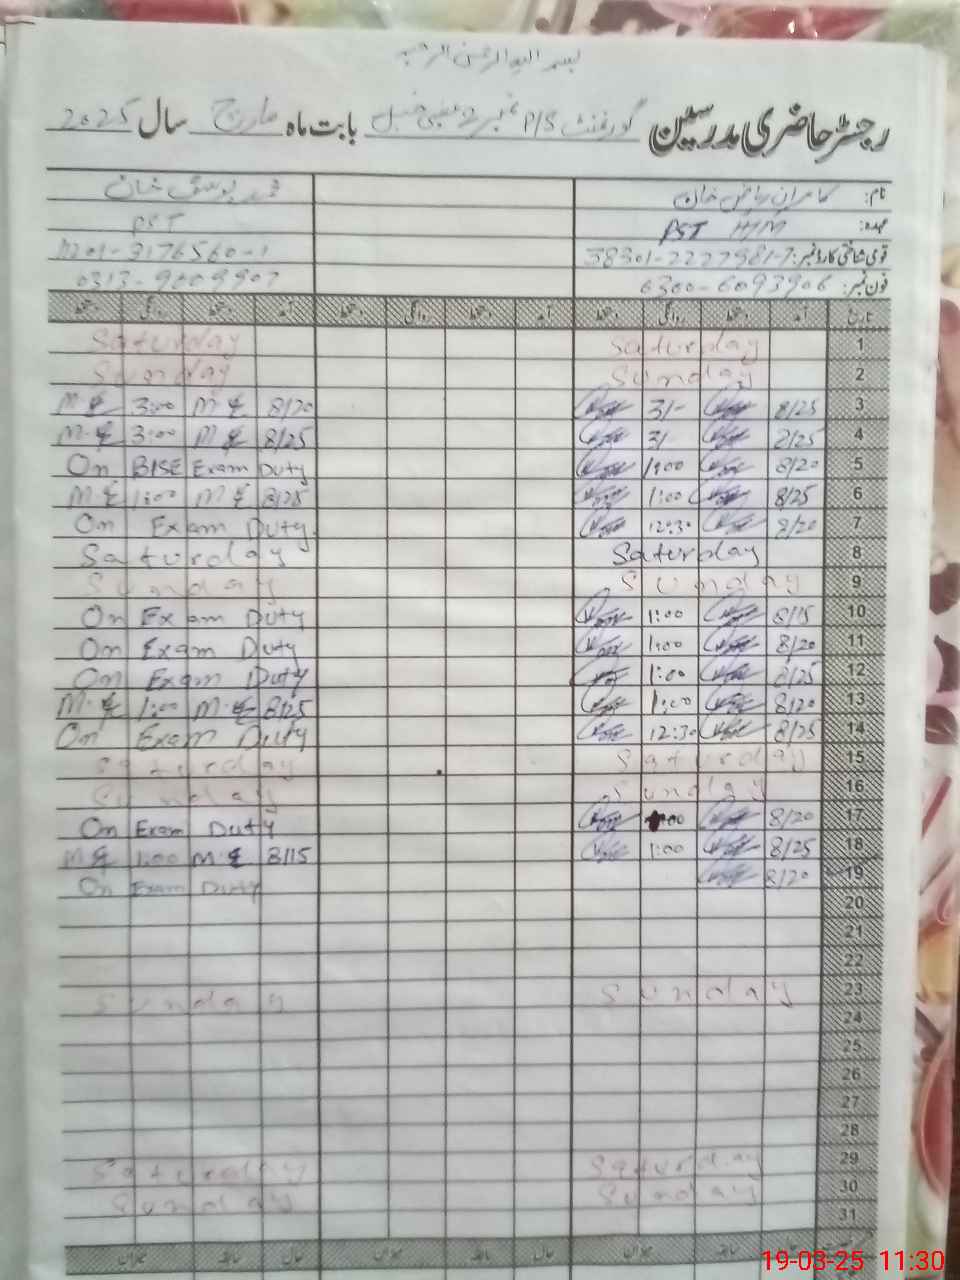 بسم اللہ الرحمن الرحیم
رجسٹر حاضری مدرسین گورنمنٹ P/S نمبر 2 خیل بابت ماہ مارچ سال 2025
نام: کامران ریاض خان محمد یوسف خان
عہدہ: PST H/M PST
قومی شناختی کارڈ نمبر: 38301-2227981-7
فون نمبر: 0300-6093906 0313-9009907
تاریخ آمد دستخط روانگی دستخط آمد دستخط روانگی دستخط آمد دستخط روانگی دستخط
1 Saturday Saturday
2 Sunday Sunday
3 8/25 3/- 8/20 3:00
4 8/25 3/- 8/25 3:00
5 8/20 1:00 On BISE Exam Duty
6 8/25 1:00 8/25 1:00
7 8/20 12:30 On Exam Duty
8 Saturday Saturday
9 Sunday Sunday
10 8/15 1:00 On Exam Duty
11 8/20 1:00 On Exam Duty
12 8/25 1:00 On Exam Duty
13 8/20 1:00 8/25 1:00
14 8/25 12:30 On Exam Duty
15 Saturday Saturday
16 Sunday Sunday
17 8/20 On Exam Duty
18 8/25 1:00 8/15 1:00
19 8/20 On Exam Duty
20
21
22
23 Sunday Sunday
24
25
26
27
28
29 Saturday Saturday
30 Sunday Sunday
31
حال سابقہ میزان حال سابقہ میزان حال سابقہ میزان
19-03-25 11:30